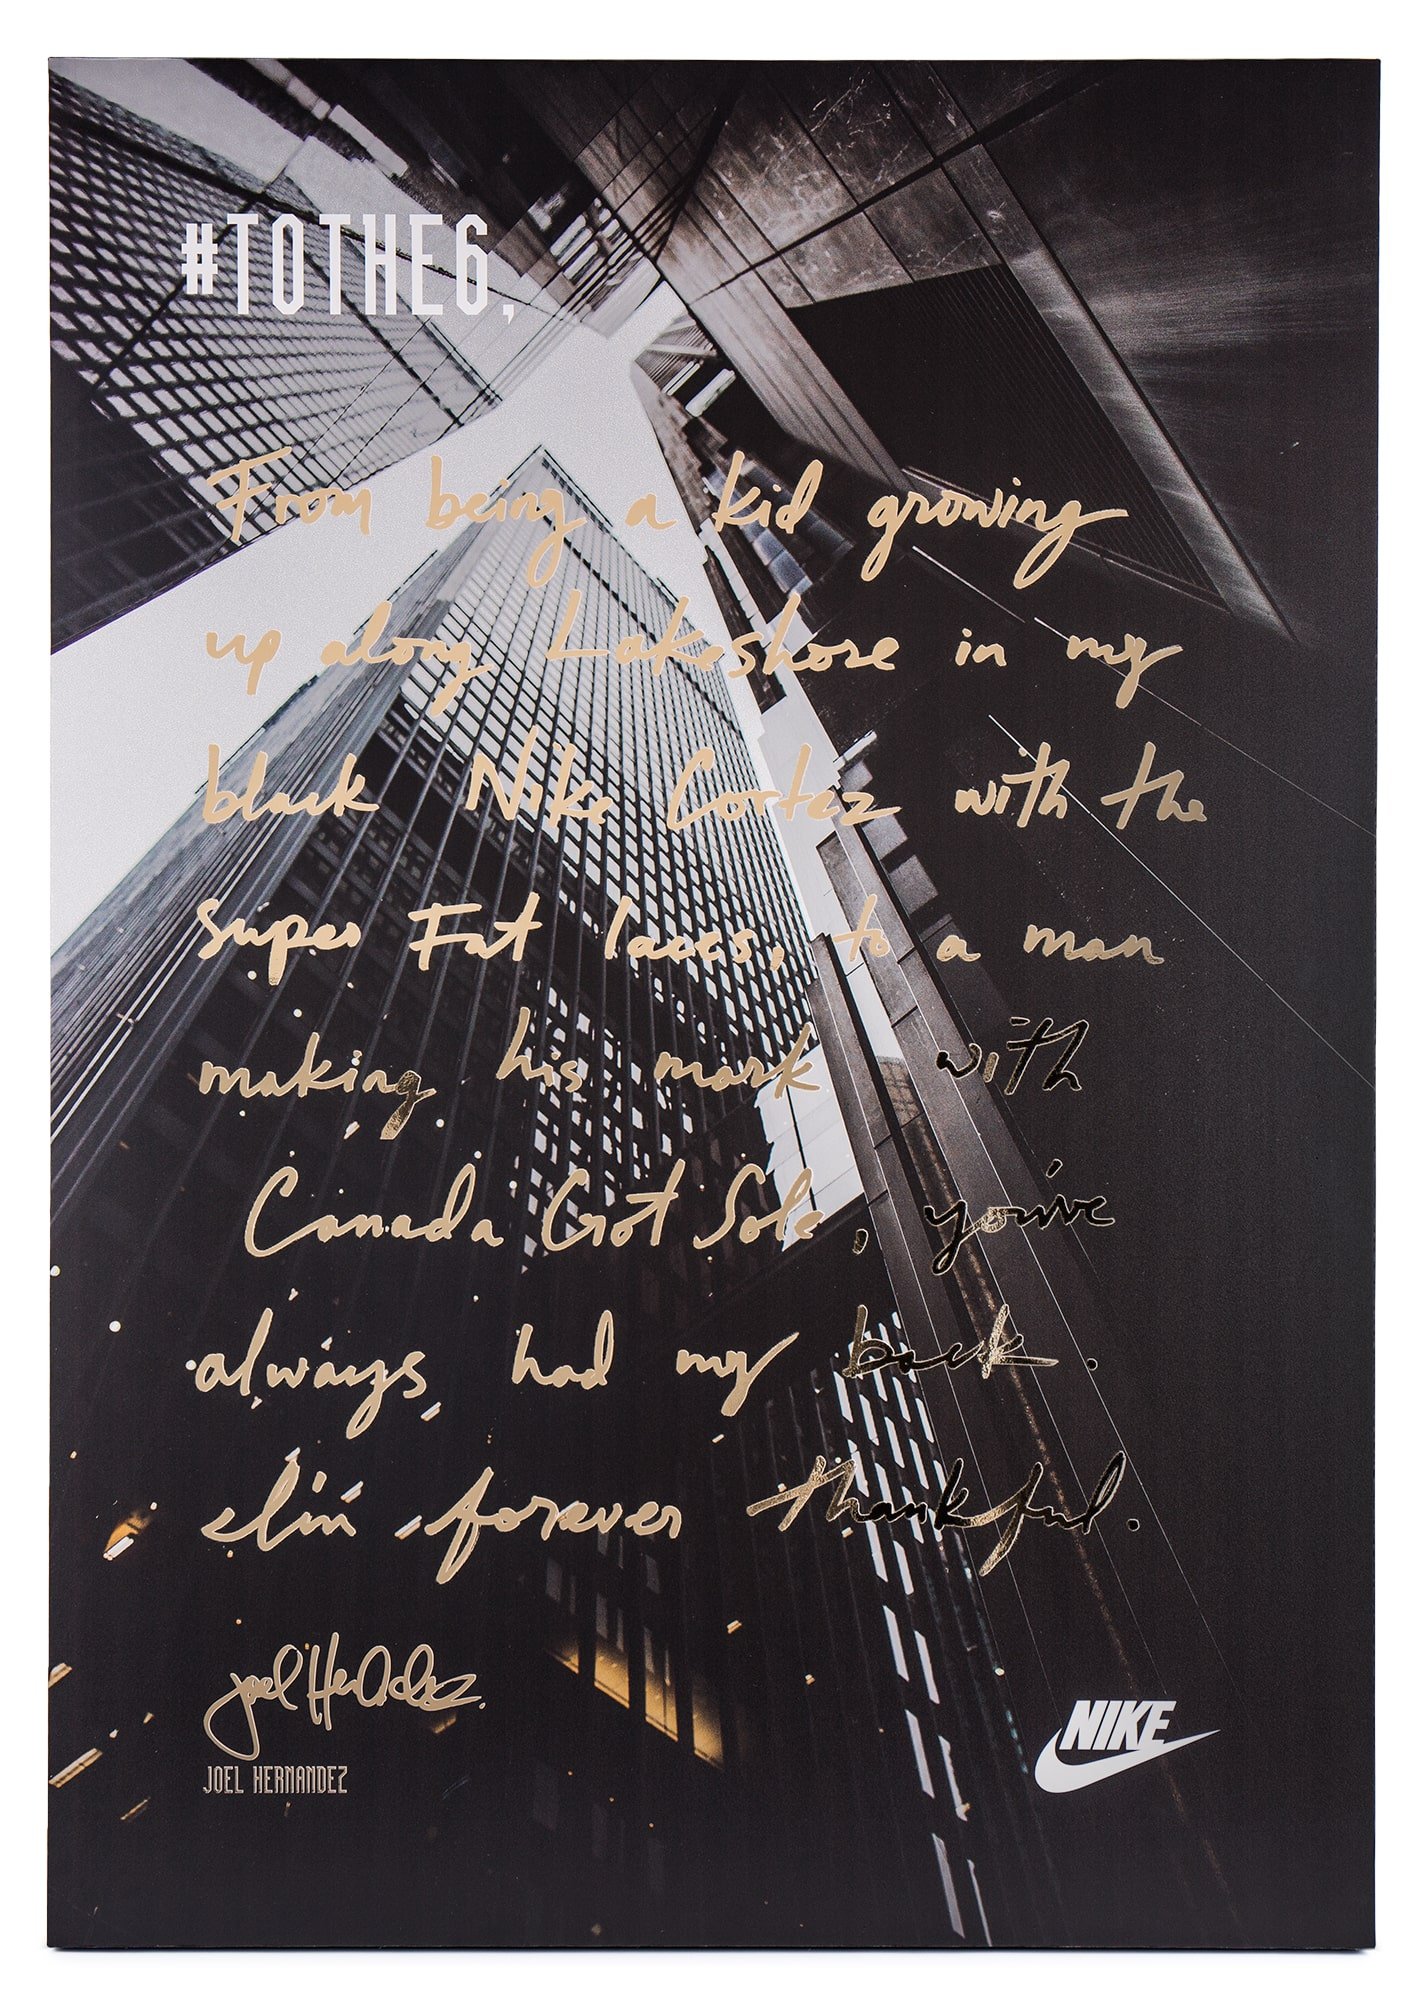 #TOTHE6,
From being a kid growing
up along Lakeshore in my
black Nike Cortez with the
Super Fat laces, to a man
making his mark with
Canada Got Sole, you've
always had my back.
I'm forever thankful.
Joel Hernandez
JOEL HERNANDEZ
NIKE